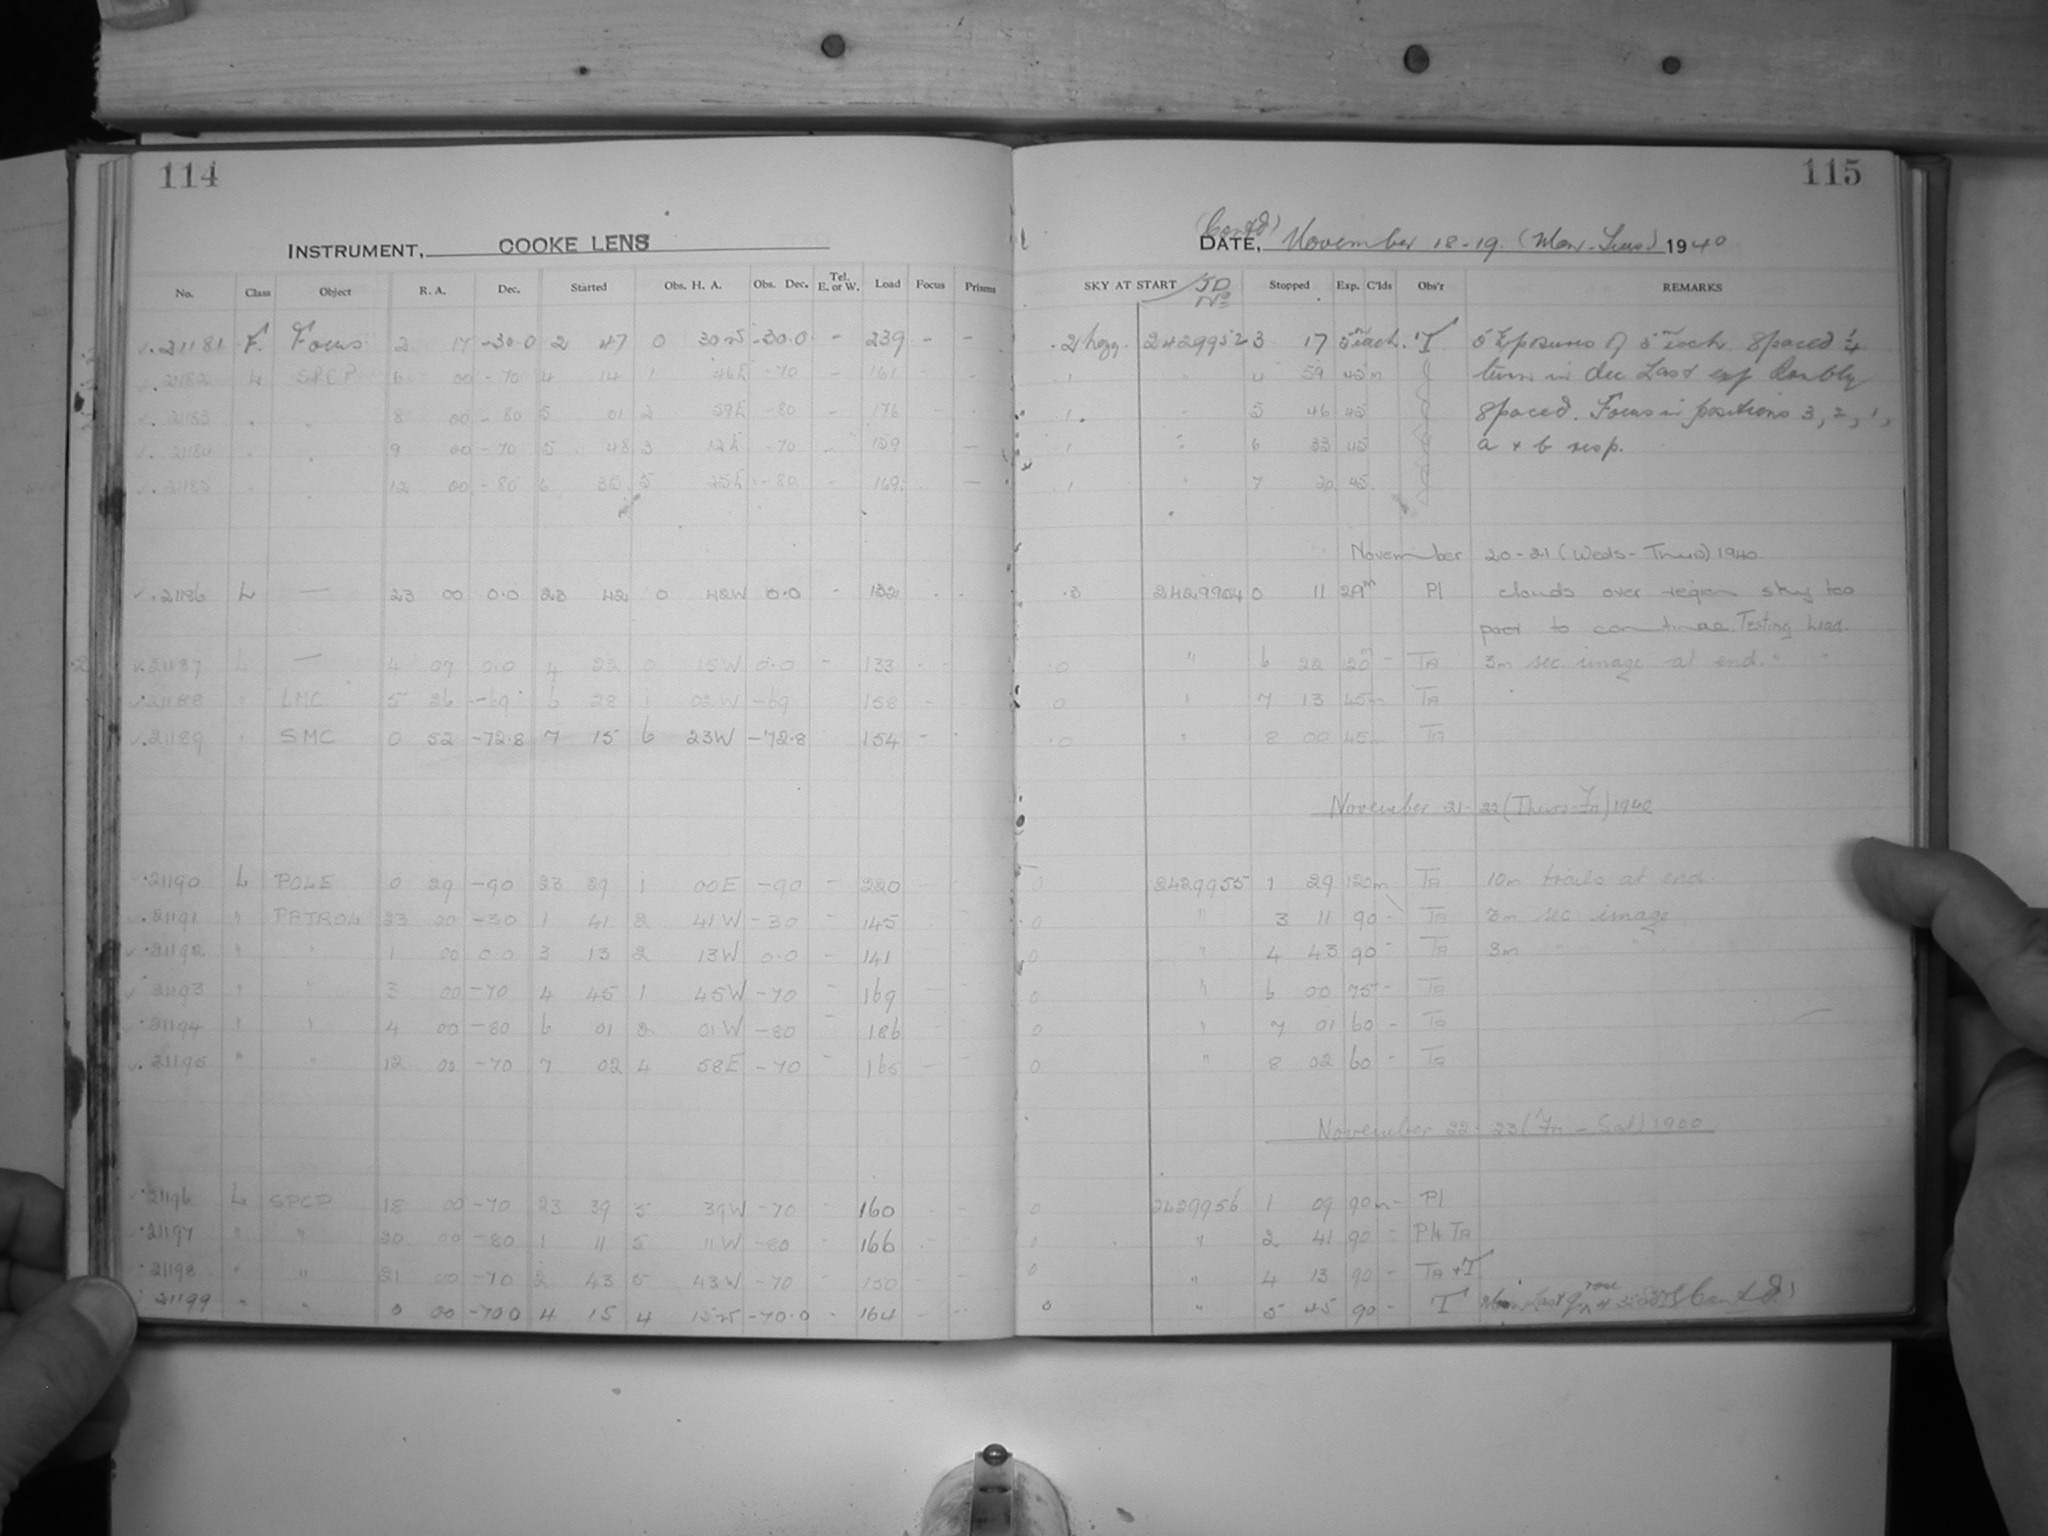 114
INSTRUMENT, COOKE LENS
No. Class Object R. A. Dec. Started Obs. H. A. Obs. Dec. Tel. E. or W. Load Focus Prisms
21181 F. Focus 2 17 -30.0 2 47 0 30 W -30.0 - 239 - -
21182 L SPCP 6 00 -70 4 14 1 46E -70 - 161 - -
21183 " " 8 00 -80 5 01 2 59E -80 - 176
21184 " " 9 00 -70 5 48 3 12E -70 - 159 -
21185 " " 12 00 -80 6 35 5 25E -80 - 169 -
21186 L — 23 00 0.0 23 42 0 42W 0.0 - 132
21187 L — 4 07 0.0 4 22 0 15W 0.0 - 133
21188 " LMC 5 26 -69 6 28 1 02W -69 158 -
21189 " SMC 0 52 -72.8 7 15 6 23W -72.8 154 -
21190 L POLE 0 29 -90 23 29 1 00E -90 - 220
21191 " PATROL 23 00 -30 1 41 2 41W -30 - 145
21192 " " 1 00 0.0 3 13 2 13W 0.0 - 141
21193 " " 3 00 -70 4 45 1 45W -70 - 169
21194 " " 4 00 -80 6 01 2 01W -80 - 186
21195 " " 12 00 -70 7 02 4 58E -70 - 165 -
21196 L SPCP 18 00 -70 23 39 5 39W -70 - 160
21197 " " 20 00 -80 1 11 5 11W -80 - 166
21198 " " 21 00 -70 2 43 5 43W -70 - 150
21199 " " 0 00 -70.0 4 15 4 15W -70.0 - 164
115
(Contd)
DATE, November 18-19. (Mon-Tues) 1940
SKY AT START JD No Stopped Exp. C'lds Obs'r REMARKS
.2 hazy. 2429952 3 17 5m each. T 5 Exposures of 5m each spaced 1/4
.1 " 4 59 45m J turn in dec Last exp doubly
.1 " 5 46 45 J spaced. Focus in positions 3, 2, 1,
.1 " 6 33 45 J a + b resp.
.1 " 7 20 45 J
November 20-21 (Weds-Thurs) 1940
.3 2429954 0 11 29m Pl clouds over region sky too
poor to continue. Testing Load.
0 " 6 22 120m - TA 3m sec. image at end. " "
0 " 7 13 45m TA
.0 " 8 00 45m TA
November 21-22 (Thurs-Fri) 1940
0 2429955 1 29 120m TA 10m trails at end.
0 " 3 11 90 - TA 3m sec image
0 " 4 43 90 - TA 3m " "
0 " 6 00 75 - TA
0 " 7 01 60 - TA
0 " 8 02 60 - TA
November 22-23 (Fri-Sat) 1900
0 2429956 1 09 90m - Pl
0 " 2 41 90 - Pl+ TA
0 " 4 13 90 - TA + T
0 " 5 45 90 - T Moon Last Q rose Contd